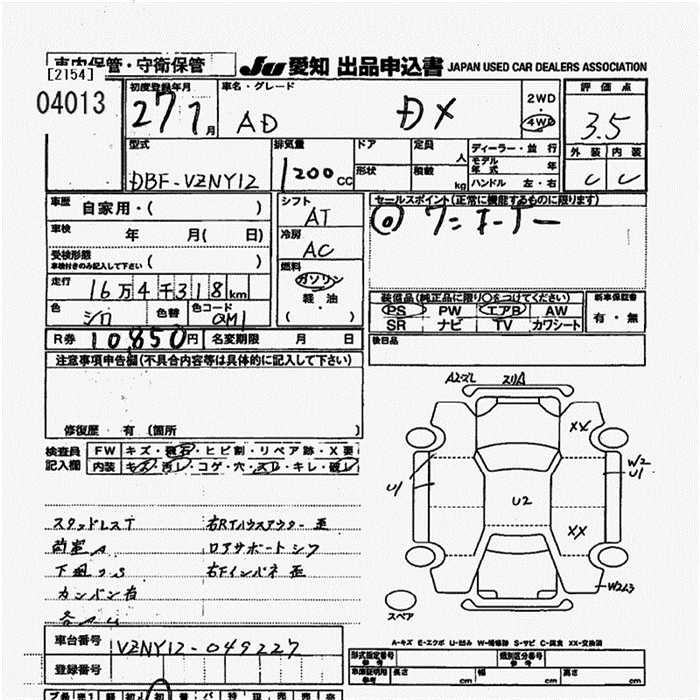 車内保管・守衛保管 JU 愛知 出品申込書 JAPAN USED CAR DEALERS ASSOCIATION
[2154]
04013
初度登録年月 27 7月
車名・グレード AD DX
2WD
4WD
評価点 3.5
外装 内装
C C
型式 DBF-VZNY12
排気量 1200 CC
ドア
形状
定員 人
積載 kg
ディーラー・並行
モデル年式 年
ハンドル 左・右
車歴 自家用・( )
車検 年 月( 日)
受検形態
車検付きのみ記入して下さい ( )
走行 16万4千318km
色 シロ 色替 色コード QM1
シフト AT
冷房 AC
燃料
ガソリン
軽・油
( )
セールスポイント(正常に機能するものに限ります)
装備品(純正品に限り○をつけてください)
PS PW エアB AW
SR ナビ TV カワシート
新車保証書
有・無
後日品
R券 10850円 名変期限 月 日
注意事項申告欄(不具合内容等は具体的に記入して下さい)
修復歴 有 (箇所
検査員記入欄
FW キズ・飛石・ヒビ割・リペア跡・X要
内装 キズ・汚レ・コゲ・穴・スレ・キレ・破レ
スタッドレスT
下廻りS
カンバン有
右RTハウスアウター歪
ロアサポートシワ
右Fインパネ歪
スリA
XX
U1
W2
U1
U2
XX
W2
スペア
A-キズ E-エクボ U-凹み W-補修跡 S-サビ C-腐食 XX-交換済
車台番号 VZNY12-049227
登録番号
型式指定番号
参考
類別区分番号
参考
車庫証明用
参考
長さ cm 幅 cm 高さ cm